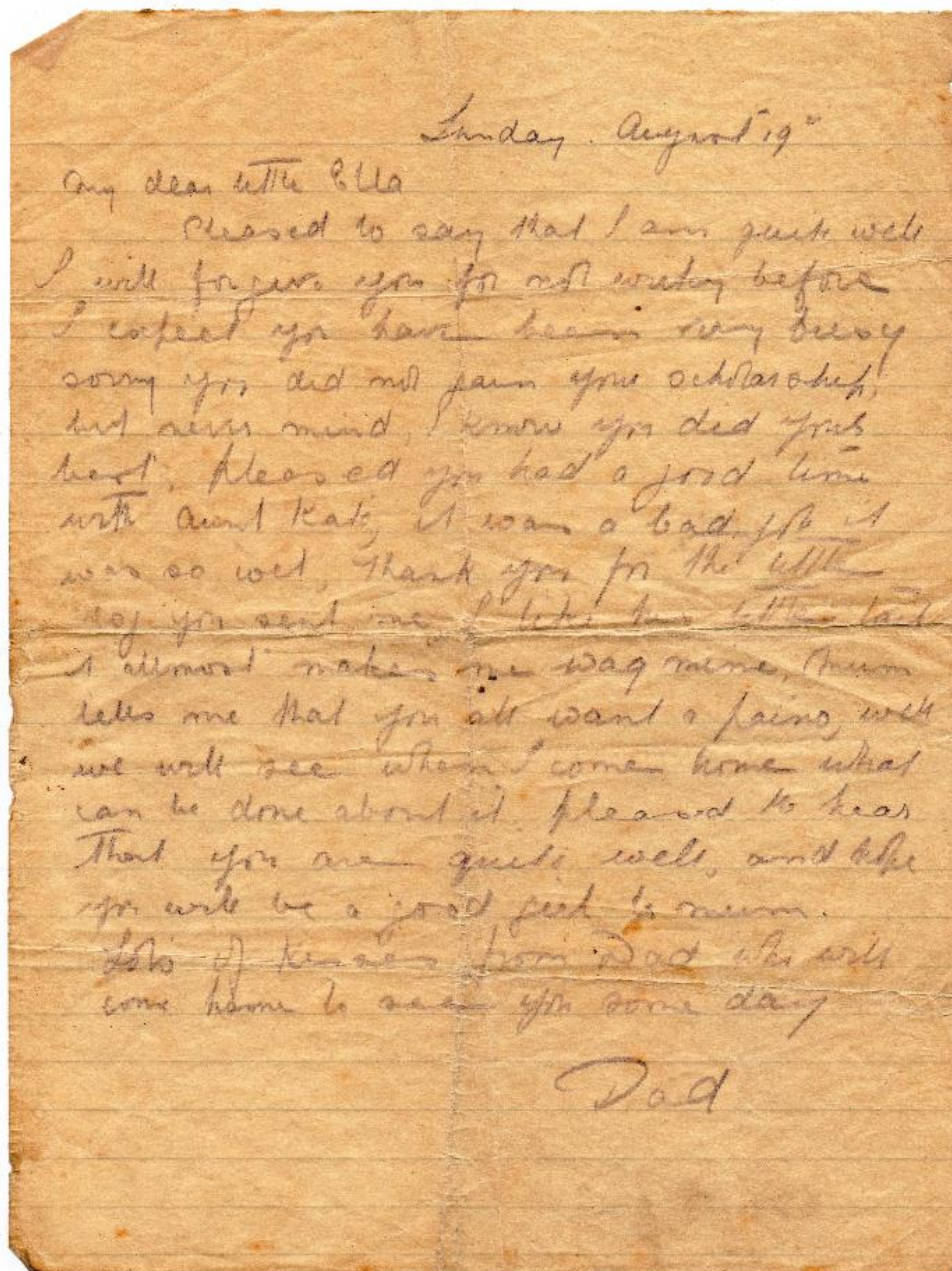 Sunday. August 19"
My dear little Ella
Pleased to say that I am quite well
I will forgive you for not writing before
I expect you have been very busy
sorry you did not gain your scholarship,
but never mind, I know you did your
best. pleased you had a good time
with Aunt Kate, it was a bad job it
was so wet, thank you for the little
dog you sent me I like his little tail
it allmost makes me wag mine, Mum
tells me that you all want a paino, well
we will see when I come home what
can be done about it. pleased to hear
that you are quite well, and hope
you will be a good girl to mum.
Lots of kisses from Dad who will
come home to see you some day
Dad